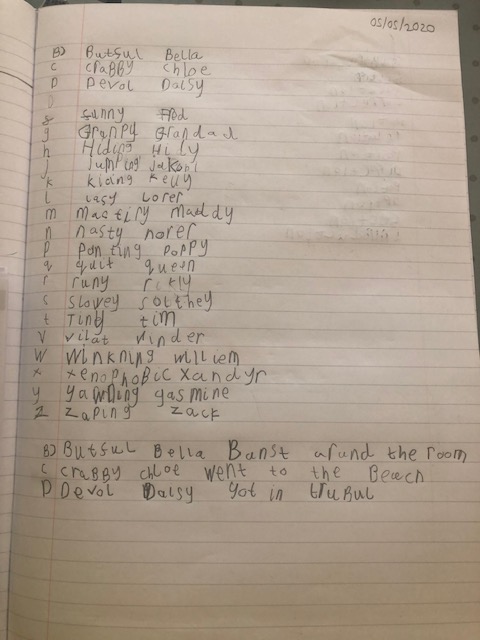 05/05/2020
B) Butful Bella
C crabby chloe
D Devol Daisy
f funny Fred
g Grampy Grandad
h Hiding Hily
j Jumping
k kiding kelly
l lasy Lorer
m mastiry maddy
n nasty norer
p Ponting poppy
q quit queen
r runy
s slovey southey
t Tiny tim
v vilat vinder
W Winkning williem
x xenophobic Xandyr
y yawning yasmine
z zaping zack
B) Butful Bella Banst arund the room
C crabby chloe went to the Beach
D Devol Daisy got in trubul